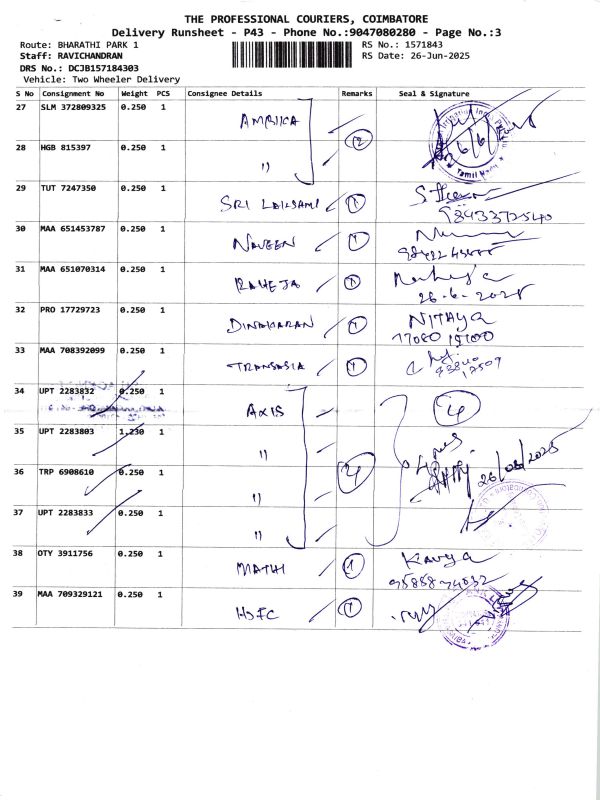 THE PROFESSIONAL COURIERS, COIMBATORE
Delivery Runsheet - P43 - Phone No.:9047080280 - Page No.:3
Route: BHARATHI PARK 1
RS No.: 1571843
Staff: RAVICHANDRAN
RS Date: 26-Jun-2025
DRS No.: DCJB157184303
Vehicle: Two Wheeler Delivery
S No Consignment No Weight PCS Consignee Details Remarks Seal & Signature
27 SLM 372809325 0.250 1 AMBIKA 2
28 HGB 815397 0.250 1 "
29 TUT 7247350 0.250 1 SRI LAKSAMI 1
30 MAA 651453787 0.250 1 NAVEEN 1
31 MAA 651070314 0.250 1 RAHEJA 1
26-6-2025
32 PRO 17729723 0.250 1 DINAKARAN 1 NITHYA
33 MAA 708392099 0.250 1 TRANSASIA 1
34 UPT 2283832 0.250 1 AXIS 4
35 UPT 2283803 1.230 1 "
36 TRP 6908610 0.250 1 " 4 26/06/2025
37 UPT 2283833 0.250 1 "
38 OTY 3911756 0.250 1 MATHI 1 Kavya
39 MAA 709329121 0.250 1 HDFC 1